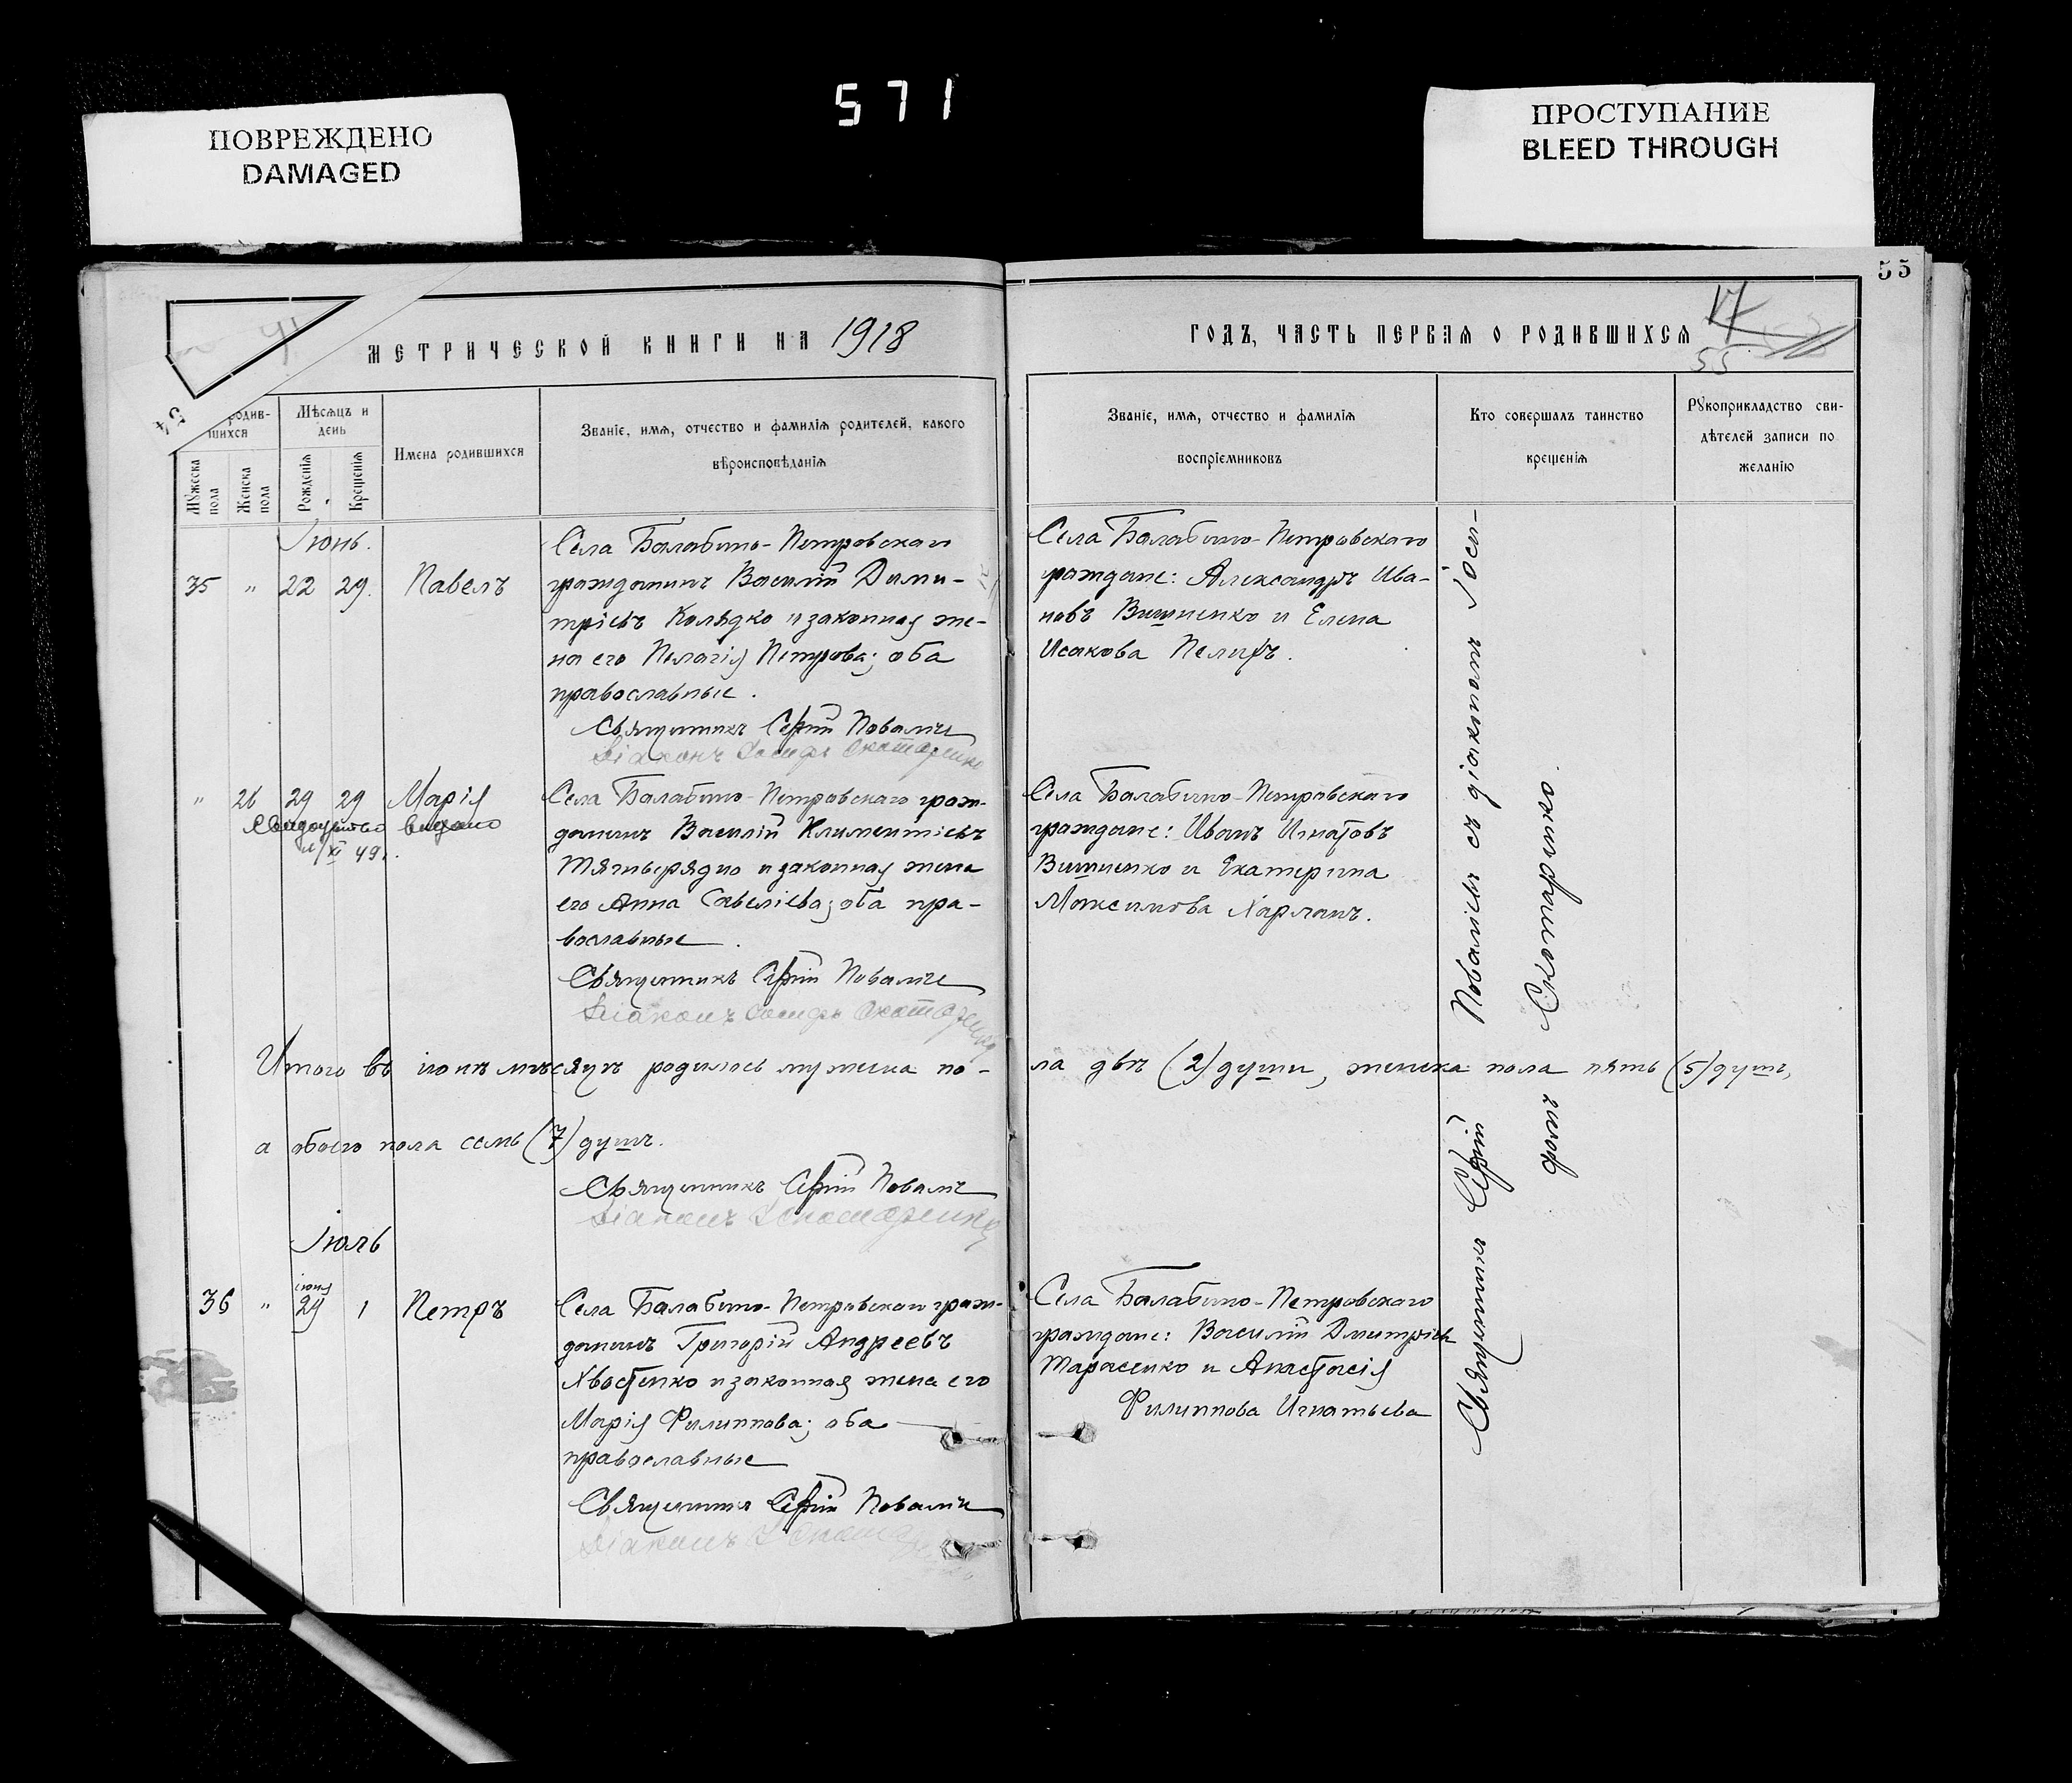 571
ПОВРЕЖДЕНО
DAMAGED
ПРОСТУПАНИЕ
BLEED THROUGH
55
17
55
54
МЕТРИЧЕСКОЙ КНИГИ НА 1918
ГОДЪ, ЧАСТЬ ПЕРВАЯ О РОДИВШИХСЯ
родив-
шихся
Мужеска пола
Женска пола
Мѣсяцъ и
день
Рожденія
Крещенія
Имена родившихся
Званіе, имя, отчество и фамилія родителей, какого
вѣроисповѣданія
Званіе, имя, отчество и фамилія
воспріемниковъ
Кто совершалъ таинство
крещенія
Рукоприкладство сви-
дѣтелей записи по
желанію
Іюнь.
35 " 22 29. Павелъ
Села Балабино-Петровскаго
гражданинъ Василій Дими-
тріевъ Колядко и законная же-
на его Пелагія Петрова; оба
православные.
Священникъ Сергій Поваличъ
Діаконъ Іосифъ Скотаренко
Села Балабино-Петровскаго
граждане: Александръ Ива-
новъ Вишненко и Елена
Исакова
" 26 29 29 Марія
Свидоцтво видано
XI 49г.
Села Балабино-Петровскаго граж-
данинъ Василій Климентіевъ
Тягнырядно и законная жена
его Анна Савеліева; оба пра-
вославные.
Священникъ Сергій
Діаконъ Іосифъ Скотаренко
Села Балабино-Петровскаго
граждане: Иванъ Игнатовъ
Вишненко и Екатерина
Максимова Харланъ.
Итого въ іюнѣ мѣсяцѣ родилось мужеска по-
ла двѣ (2) души, женска пола пять (5) душъ,
а обоего пола семь (7) душъ.
Священникъ Сергій
Діаконъ І Скотаренко
Іюль
36 " іюня 29 1 Петръ
Села Балабино-Петровскаго граж-
данинъ Григорій Андреевъ
Хвостенко и законная жена его
Марія Филиппова; оба
православные
Священникъ Сергій
Діаконъ
Села Балабино-Петровскаго
граждане: Василій Дмитріевъ
Тарасенко и Анастасія
Филиппова Игнатьева
Священникъ Сергій Поваличъ съ діакономъ Іоси-
фомъ Скотаренко.